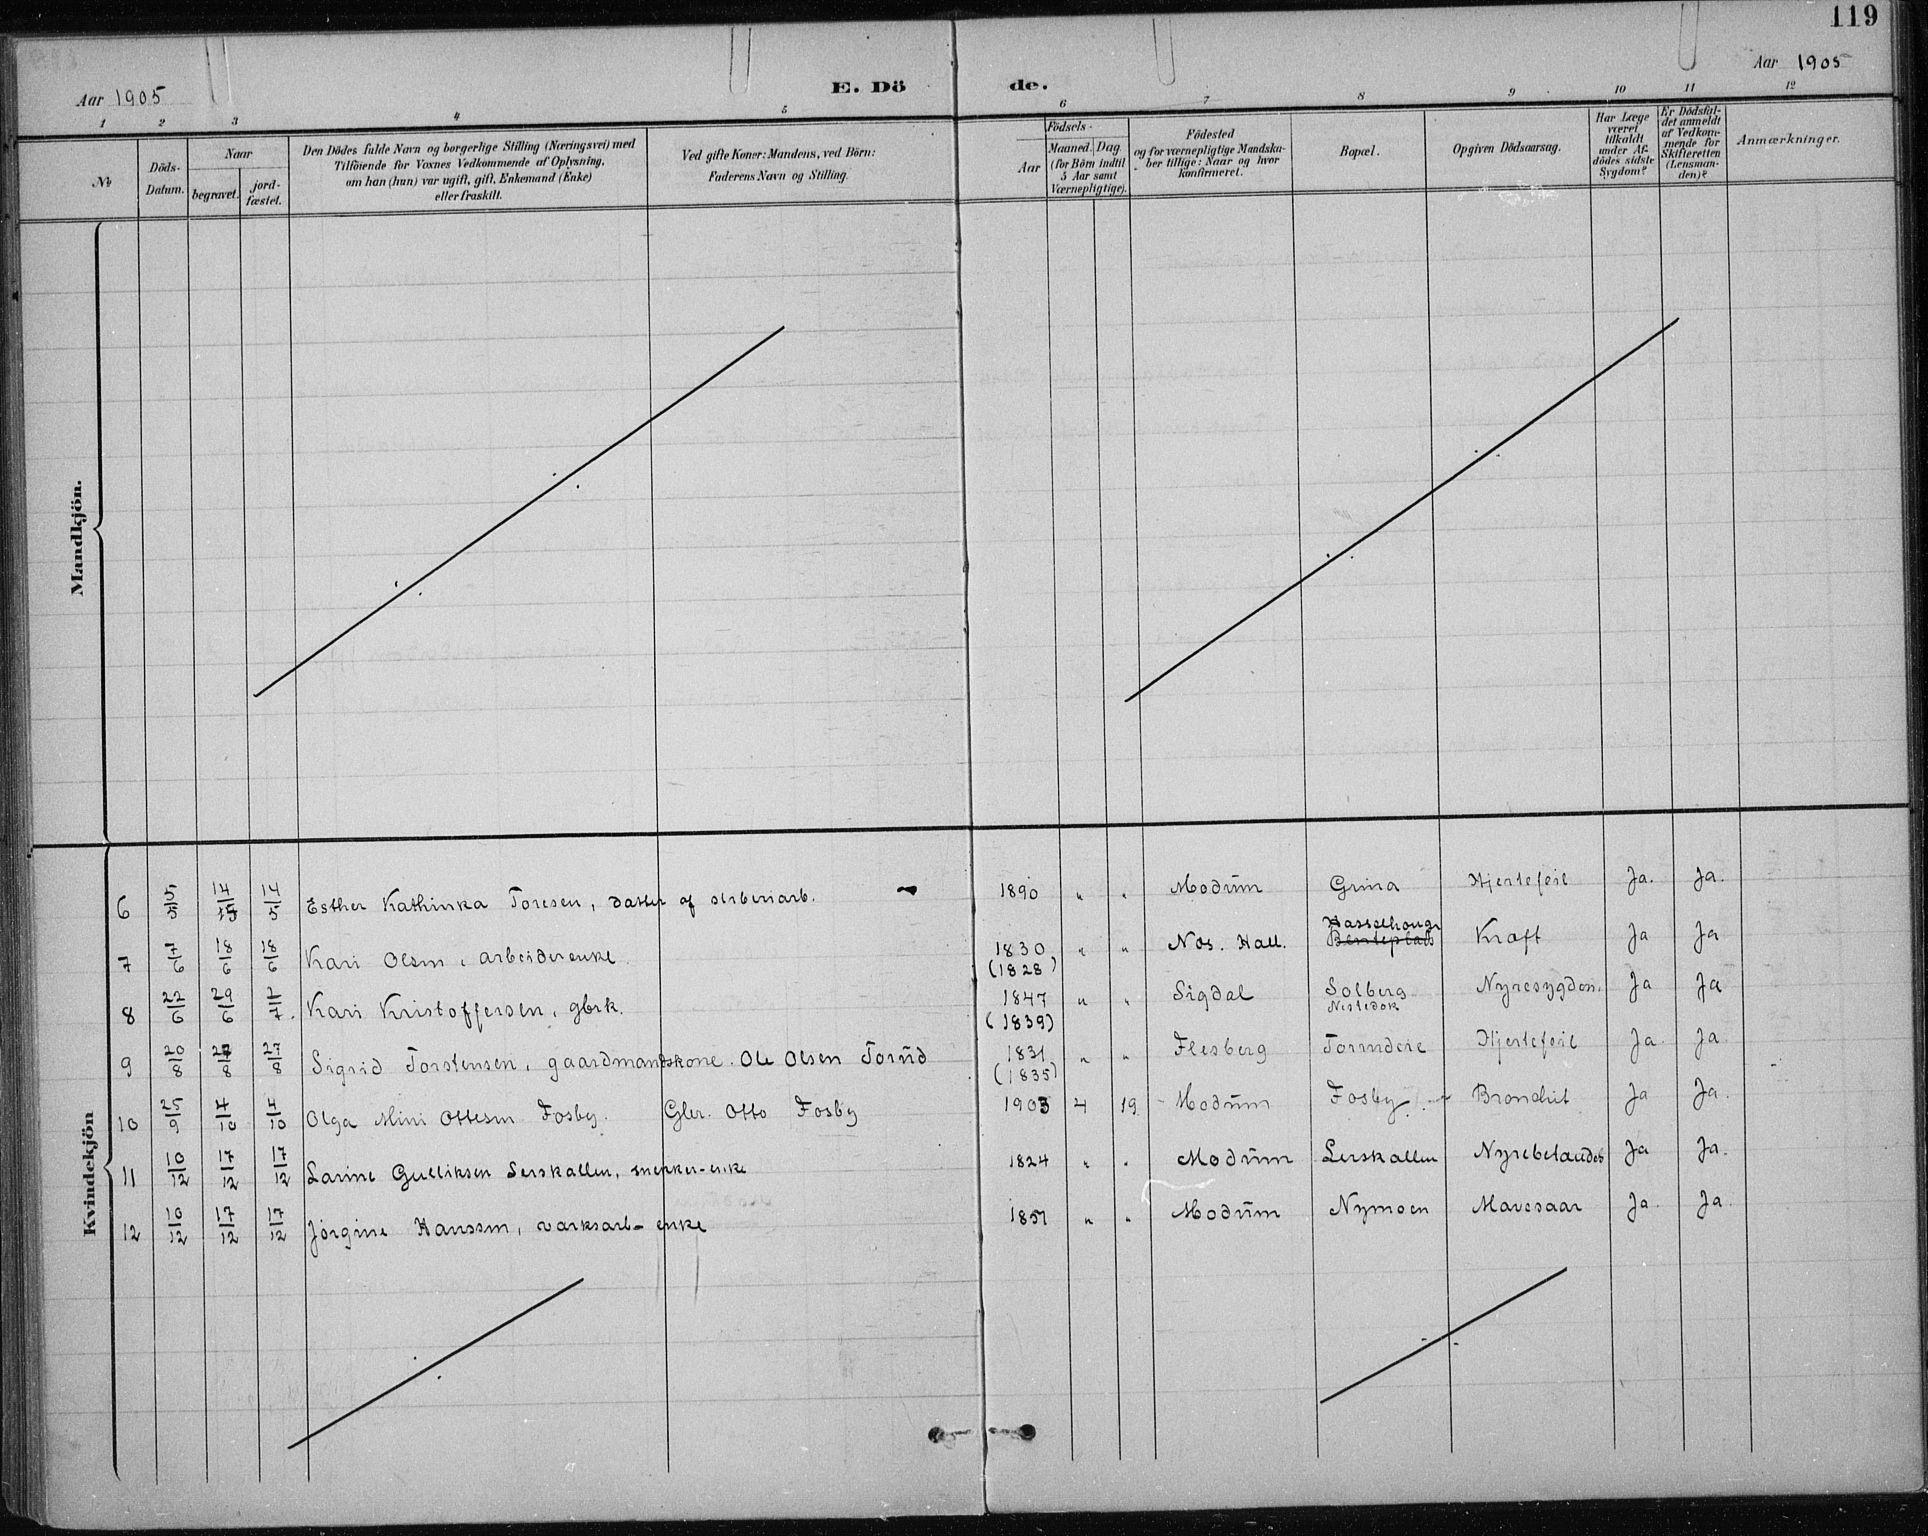 119
Aar 1905
E. Dö de.
Aar 1905
1 2 3 4 5 6 7 8 9 10 11 12
№
Döds-Datum.
Naar
begravet.
jord-fæstet.
Den Dödes fulde Navn og borgerlige Stilling (Næringsvei) med
Tilföiende for Voxnes Vedkommende af Oplysning,
om han (hun) var ugift, gift, Enkemand (Enke)
eller fraskilt.
Ved gifte Koner: Mandens, ved Börn:
Faderens Navn og Stilling.
Födsels-
Aar
Maaned. Dag.
(for Börn indtil
5 Aar samt
Værnepligtige).
Födested
og for værnepligtige Mandska-
ber tillige: Naar og hvor
konfirmeret.
Bopæl.
Opgiven Dödsaarsag.
Har Læge
været
tilkaldt
under Af-
dödes sidste
Sygdom?
Er Dödsfal-
det anmeldt
af Vedkom-
mende for
Skifteretten
(Lensman-
den)?
Anmærkninger.
Mandkjön.
Kvindekjön
6 5/5 14/5 14/5 Esther Kathinka Toresen, datter af sliberiarb. 1890 " " Modum Grina Hjertefeil Ja. Ja.
7 7/6 18/6 18/6 Kari Olsen, arbeiderenke. 1830 (1828) " " Nos. Hall. Hasselhaugn Kræft Ja Ja
8 22/6 29/6 2/7. Kari Kristoffersen, gbrk. 1847 (1839) " " Sigdal Solberg Nyresygdom. Ja Ja
9 20/8 27/8 27/8 Sigrid Torstensen, gaardmandskone. Ole Olsen Torud 1831 (1835) " " Flesberg Torudeie Hjertefeil Ja Ja
10 25/9 4/10 4/10 Olga Mini Ottesen Fosby. Gbr. Otto Fosby 1903 4 19 Modum Fosby Bronchit Ja Ja.
11 10/12 17/12 17/12 Larine Gulliksen Lerskallen, snekker-enke 1824 " " Modum Lerskallen Nyrebetændelse Ja Ja.
12 10/12 17/12 17/12 Jørgine Hanssen, værksarb-enke 1851 " " Modum Nymoen Mavesaar Ja. Ja.